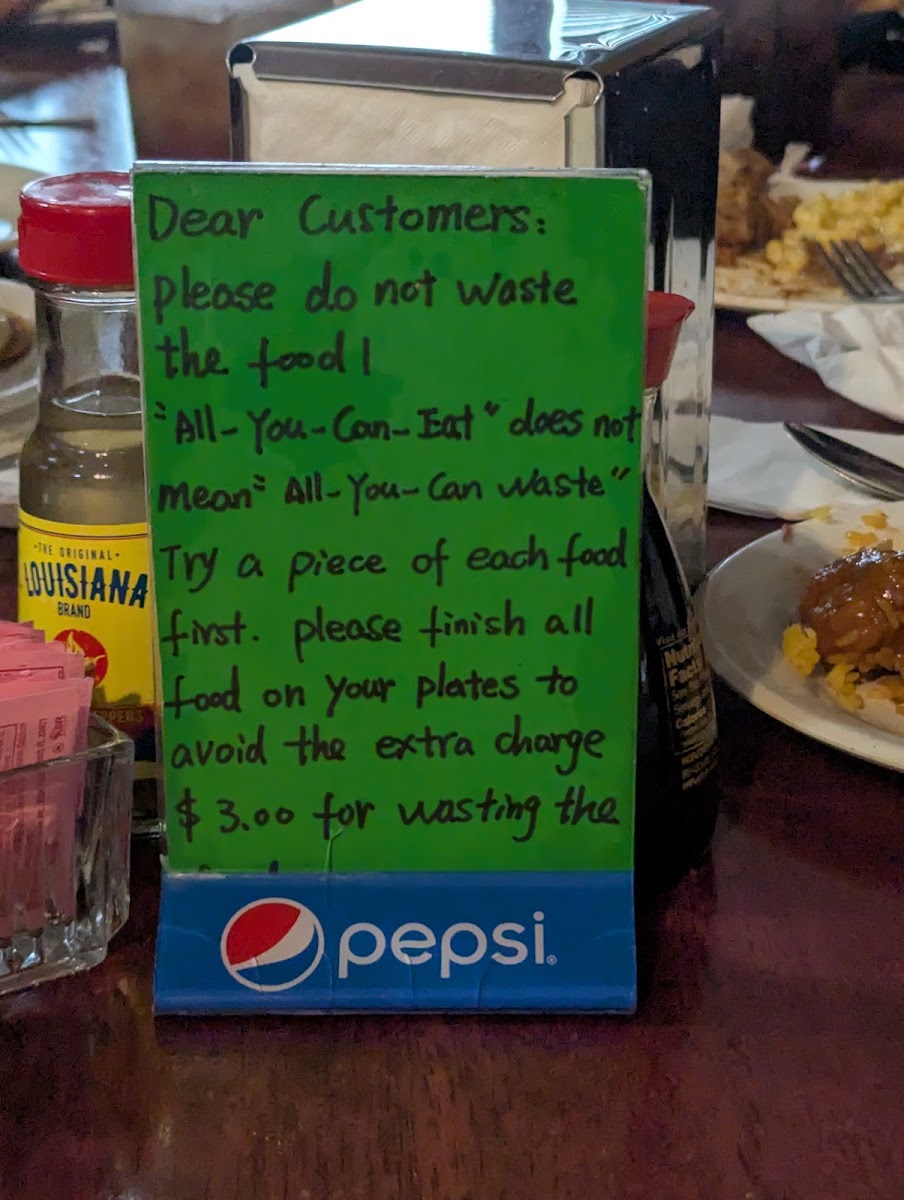 Dear Customers:
please do not waste
the food!
"All-You-Can-Eat" does not
mean "All-You-Can waste"
Try a piece of each food
first. please finish all
food on your plates to
avoid the extra charge
$3.00 for wasting the
pepsi
-THE ORIGINAL-
LOUISIANA
BRAND
Nutri
Facts